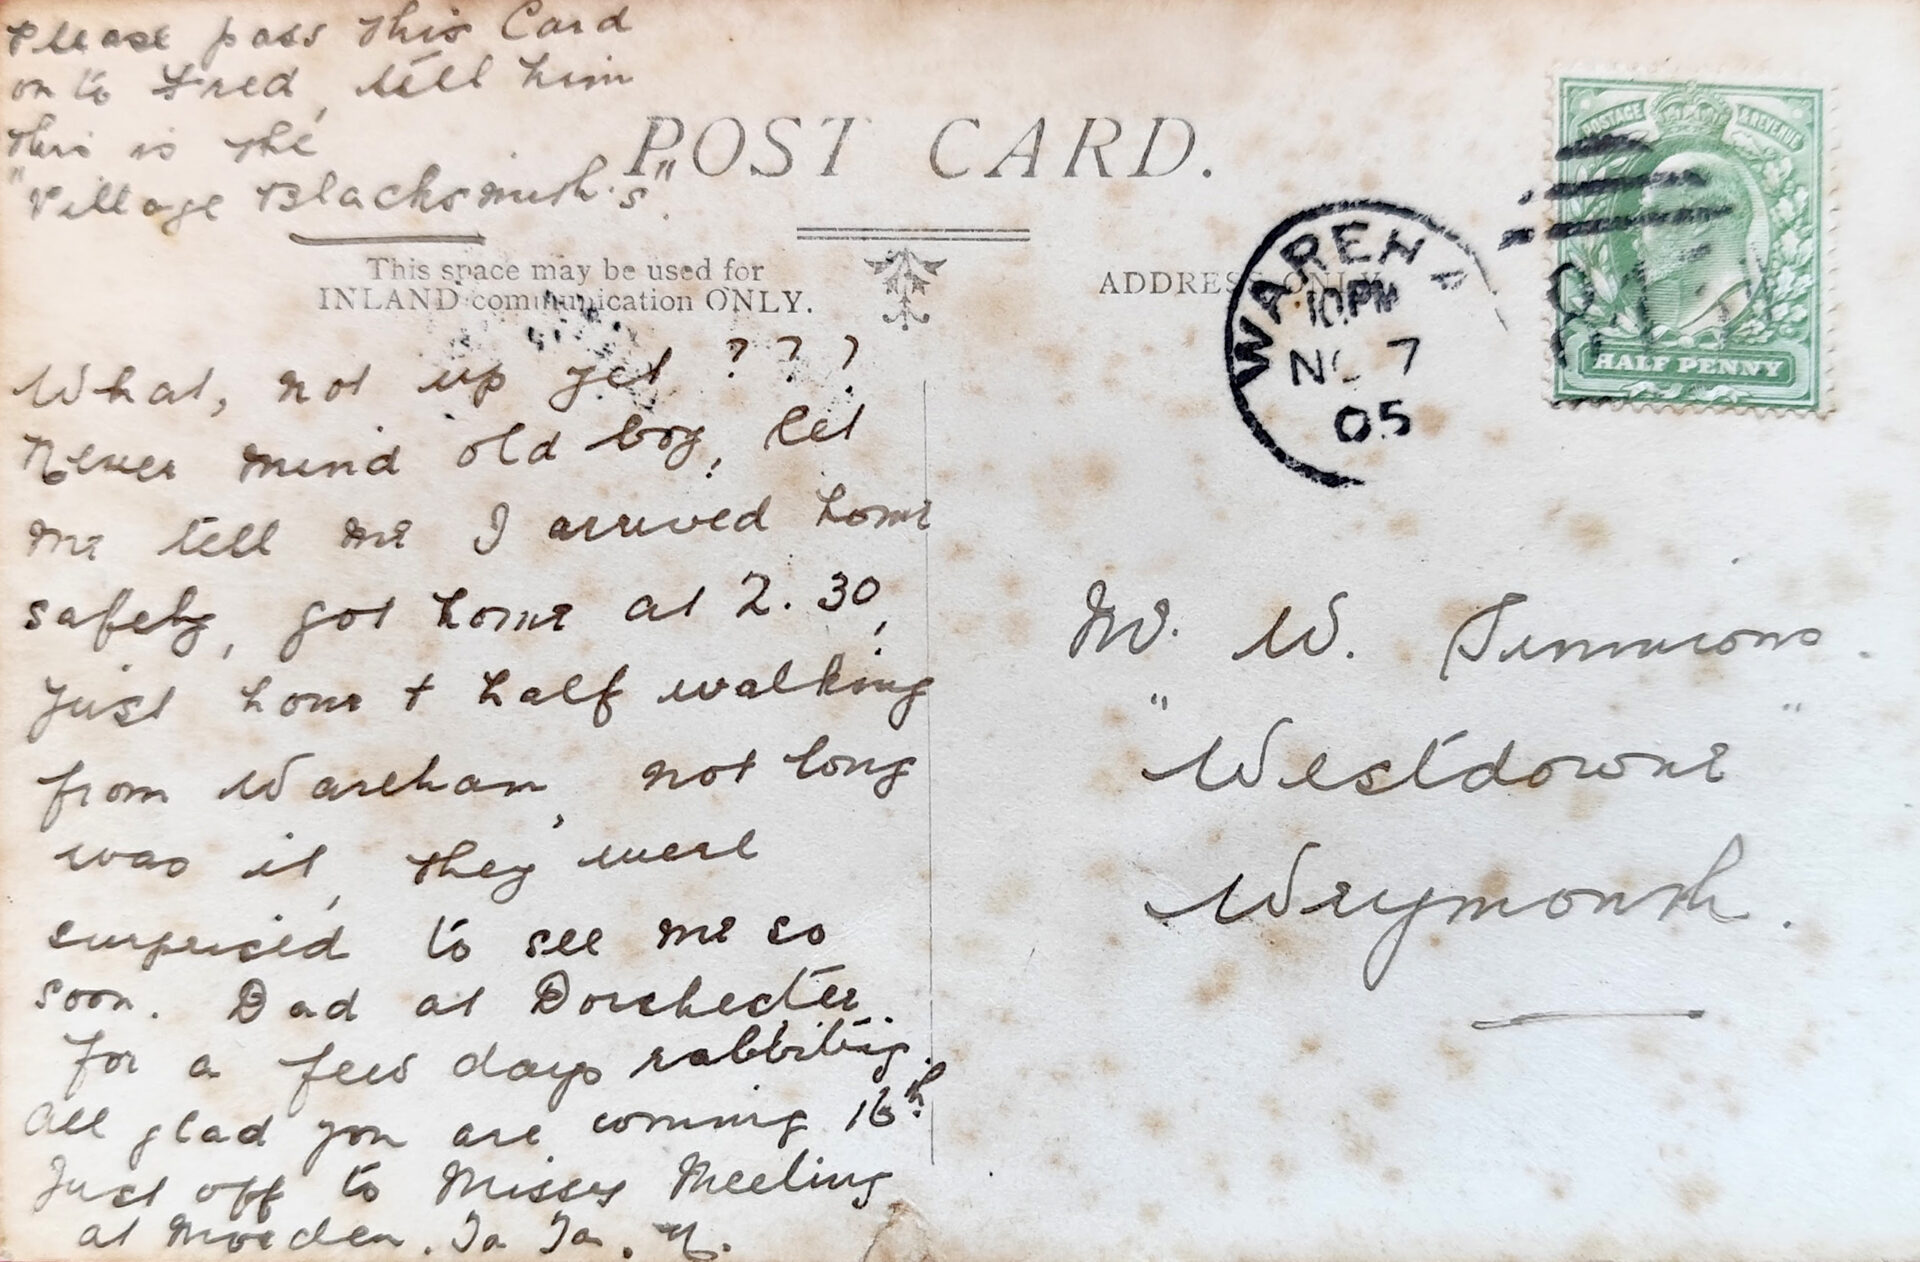 Please pass this Card
on to Fred, tell him
this is the
"Village Blacksmith's".
POST CARD.
This space may be used for
INLAND communication ONLY.
ADDRESS ONLY
POSTAGE & REVENUE
HALF PENNY
WAREHA
10.PM
NO 7
05
What, not up yet ???
Never mind old boy, let
me tell me I arrived home
safely, got home at 2.30,
just hour + half walking
from Wareham, not long
was it, they were
surprised to see me so
soon. Dad at Dorchester
for a few days rabbiting.
All glad you are coming 16th
Just off to Missy Meeting
at Morden. Ta Ta.
Mr. W. Simmions.
"Westdowne"
Weymouth.